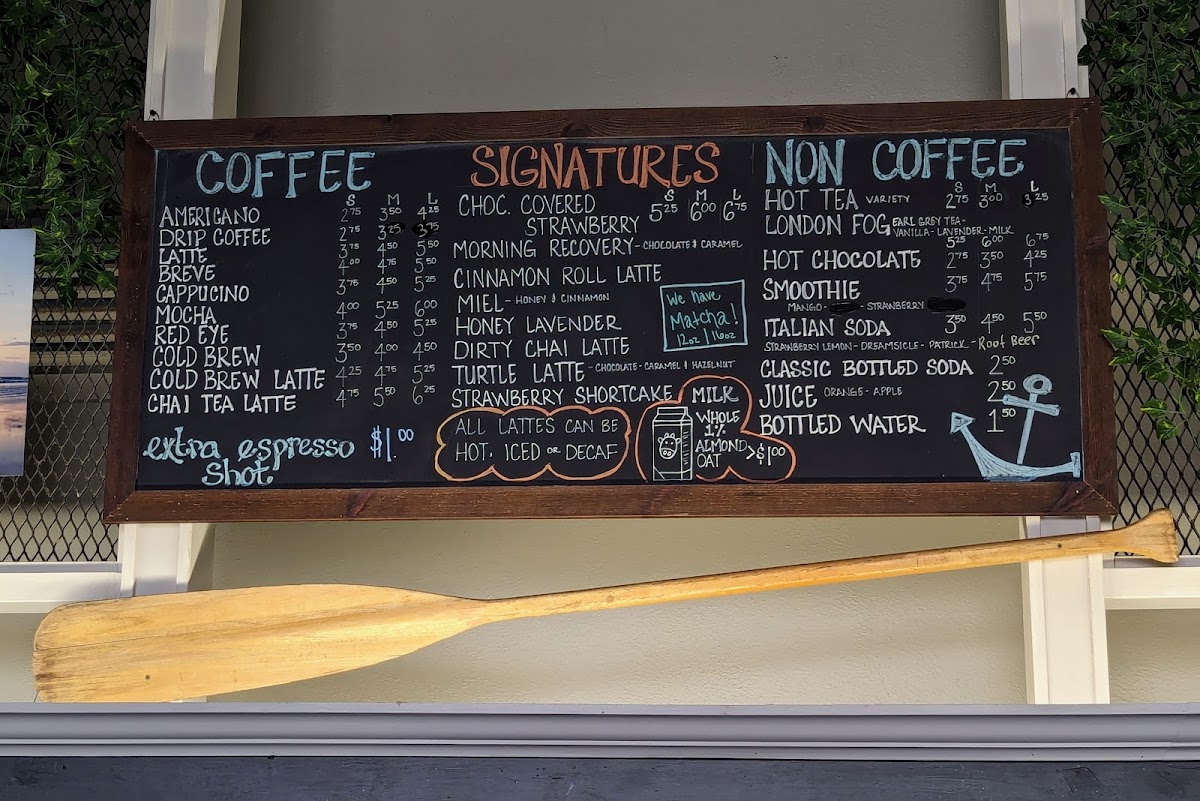 COFFEE
S M L
AMERICANO 2.75 3.50 4.25
DRIP COFFEE 2.75 3.25 3.75
LATTE 3.75 4.50 5.50
BREVE 4.00 4.75 5.50
CAPPUCINO 3.75 4.50 5.25
MOCHA 4.00 5.25 6.00
RED EYE 3.75 4.50 5.25
COLD BREW 3.50 4.00 4.50
COLD BREW LATTE 4.25 4.75 5.25
CHAI TEA LATTE 4.75 5.50 6.25
extra espresso $1.00
shot
SIGNATURES
S M L
CHOC. COVERED 5.25 6.00 6.75
STRAWBERRY
MORNING RECOVERY - CHOCOLATE & CARAMEL
CINNAMON ROLL LATTE
MIEL - HONEY & CINNAMON
HONEY LAVENDER
DIRTY CHAI LATTE
TURTLE LATTE - CHOCOLATE - CARAMEL & HAZELNUT
STRAWBERRY SHORTCAKE
We have
Matcha!
12oz | 16oz
ALL LATTES CAN BE
HOT, ICED OR DECAF
MILK
WHOLE
1%
ALMOND
OAT >$1.00
NON COFFEE
S M L
HOT TEA VARIETY 2.75 3.00 3.25
LONDON FOG EARL GREY TEA -
VANILLA - LAVENDER - MILK
5.25 6.00 6.75
HOT CHOCOLATE 2.75 3.50 4.25
SMOOTHIE 3.75 4.75 5.75
MANGO - STRAWBERRY
ITALIAN SODA 3.50 4.50 5.50
STRAWBERRY LEMON - DREAMSICLE - PATRICK - Root Beer
CLASSIC BOTTLED SODA 2.50
JUICE ORANGE - APPLE 2.50
BOTTLED WATER 1.50